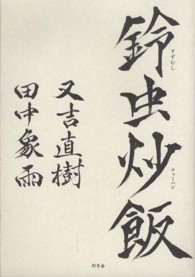 鈴虫炒飯
すずむし
チャーハン
又吉直樹
田中象雨
幻冬舎